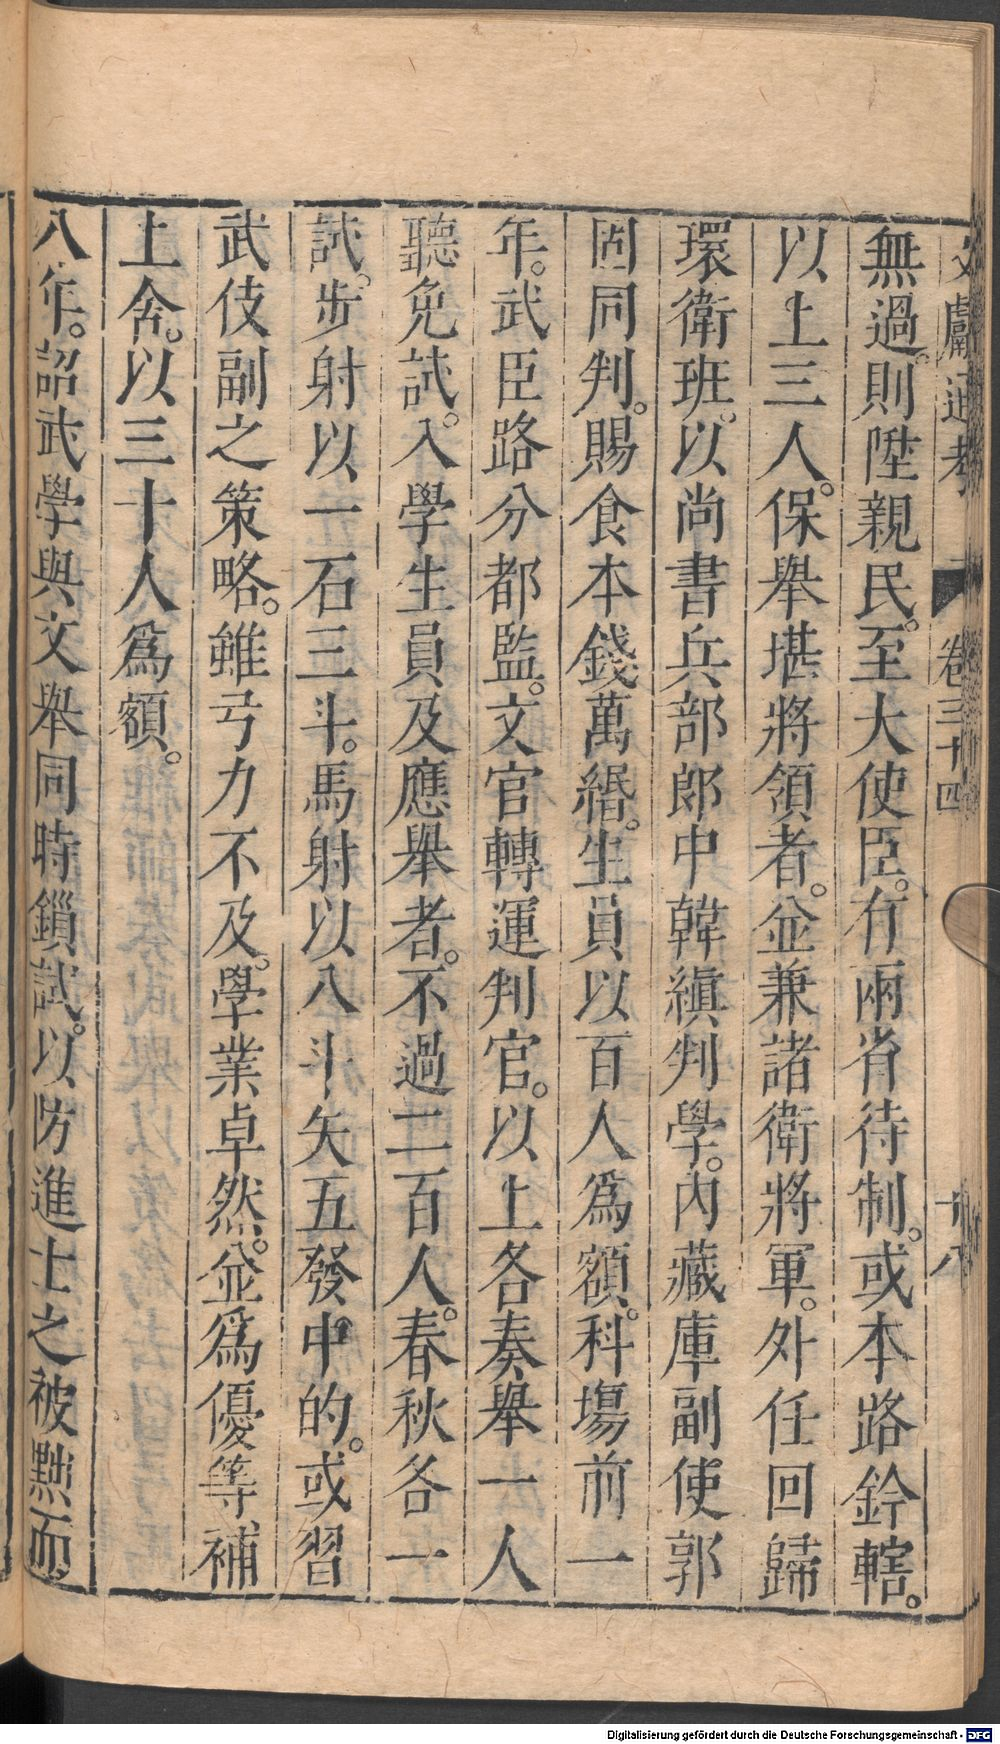 文獻通考 卷三十四 十八
無過。則陞親民。至大使臣。有兩省待制。或本路鈐轄。
以上三人。保舉堪將領者。並兼諸衛將軍。外任回歸
環衛班。以尚書兵部郎中韓縝判學。內藏庫副使郭
固同判。賜食本錢萬緡。生員以百人爲額。科場前一
年。武臣路分都監。文官轉運判官。以上各奏舉一人
聽免試。入學生員及應舉者。不過二百人。春秋各一
試。步射以一石三斗。馬射以八斗矢五發中的。或習
武伎副之策略。雖弓力不及。學業卓然。並爲優等補
上舍。以三十人爲額。
八年。詔武學與文舉同時鎖試。以防進士之被黜而
Digitalisierung gefördert durch die Deutsche Forschungsgemeinschaft - DFG